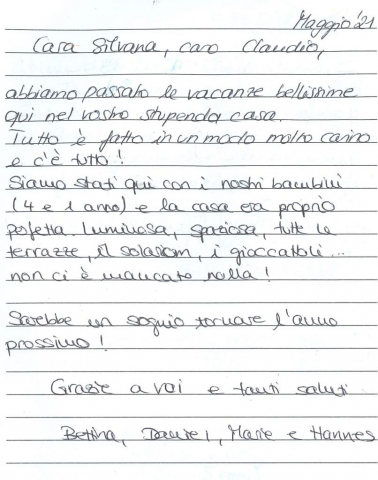 Maggio '21
Cara Silvana, caro Claudio,
abbiamo passato le vacanze bellissime
qui nel vostro stupenda casa.
Tutto è fatto in un modo molto carino
e c'è tutto!
Siamo stati qui con i nostri bambini
(4 e 1 anno) e la casa era proprio
pefetta. Luminosa, spaziosa, tutte le
terrazze, il solarium, i gioccattoli...
non ci è mancato nulla!
Sarebbe un sognio tornare l'anno
prossimo!
Grazie a voi e tanti saluti
Bettina, Daniel, Marie e Hannes